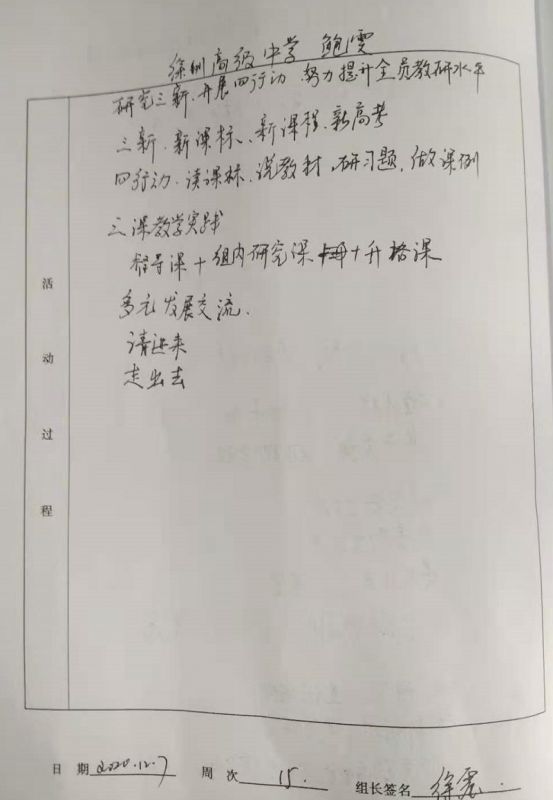 徐州高级中学 鲍雯
研究三新、开展四行动、努力提升全员教研水平
三新、新课标、新课程、新高考
四行动、读课标、说教材、研习题、做课例
三课教学实践
指导课+组内研究课+升格课
多元发展交流.
请进来
走出去
活动过程
日 期 2020.12.7 周 次 15. 组长签名